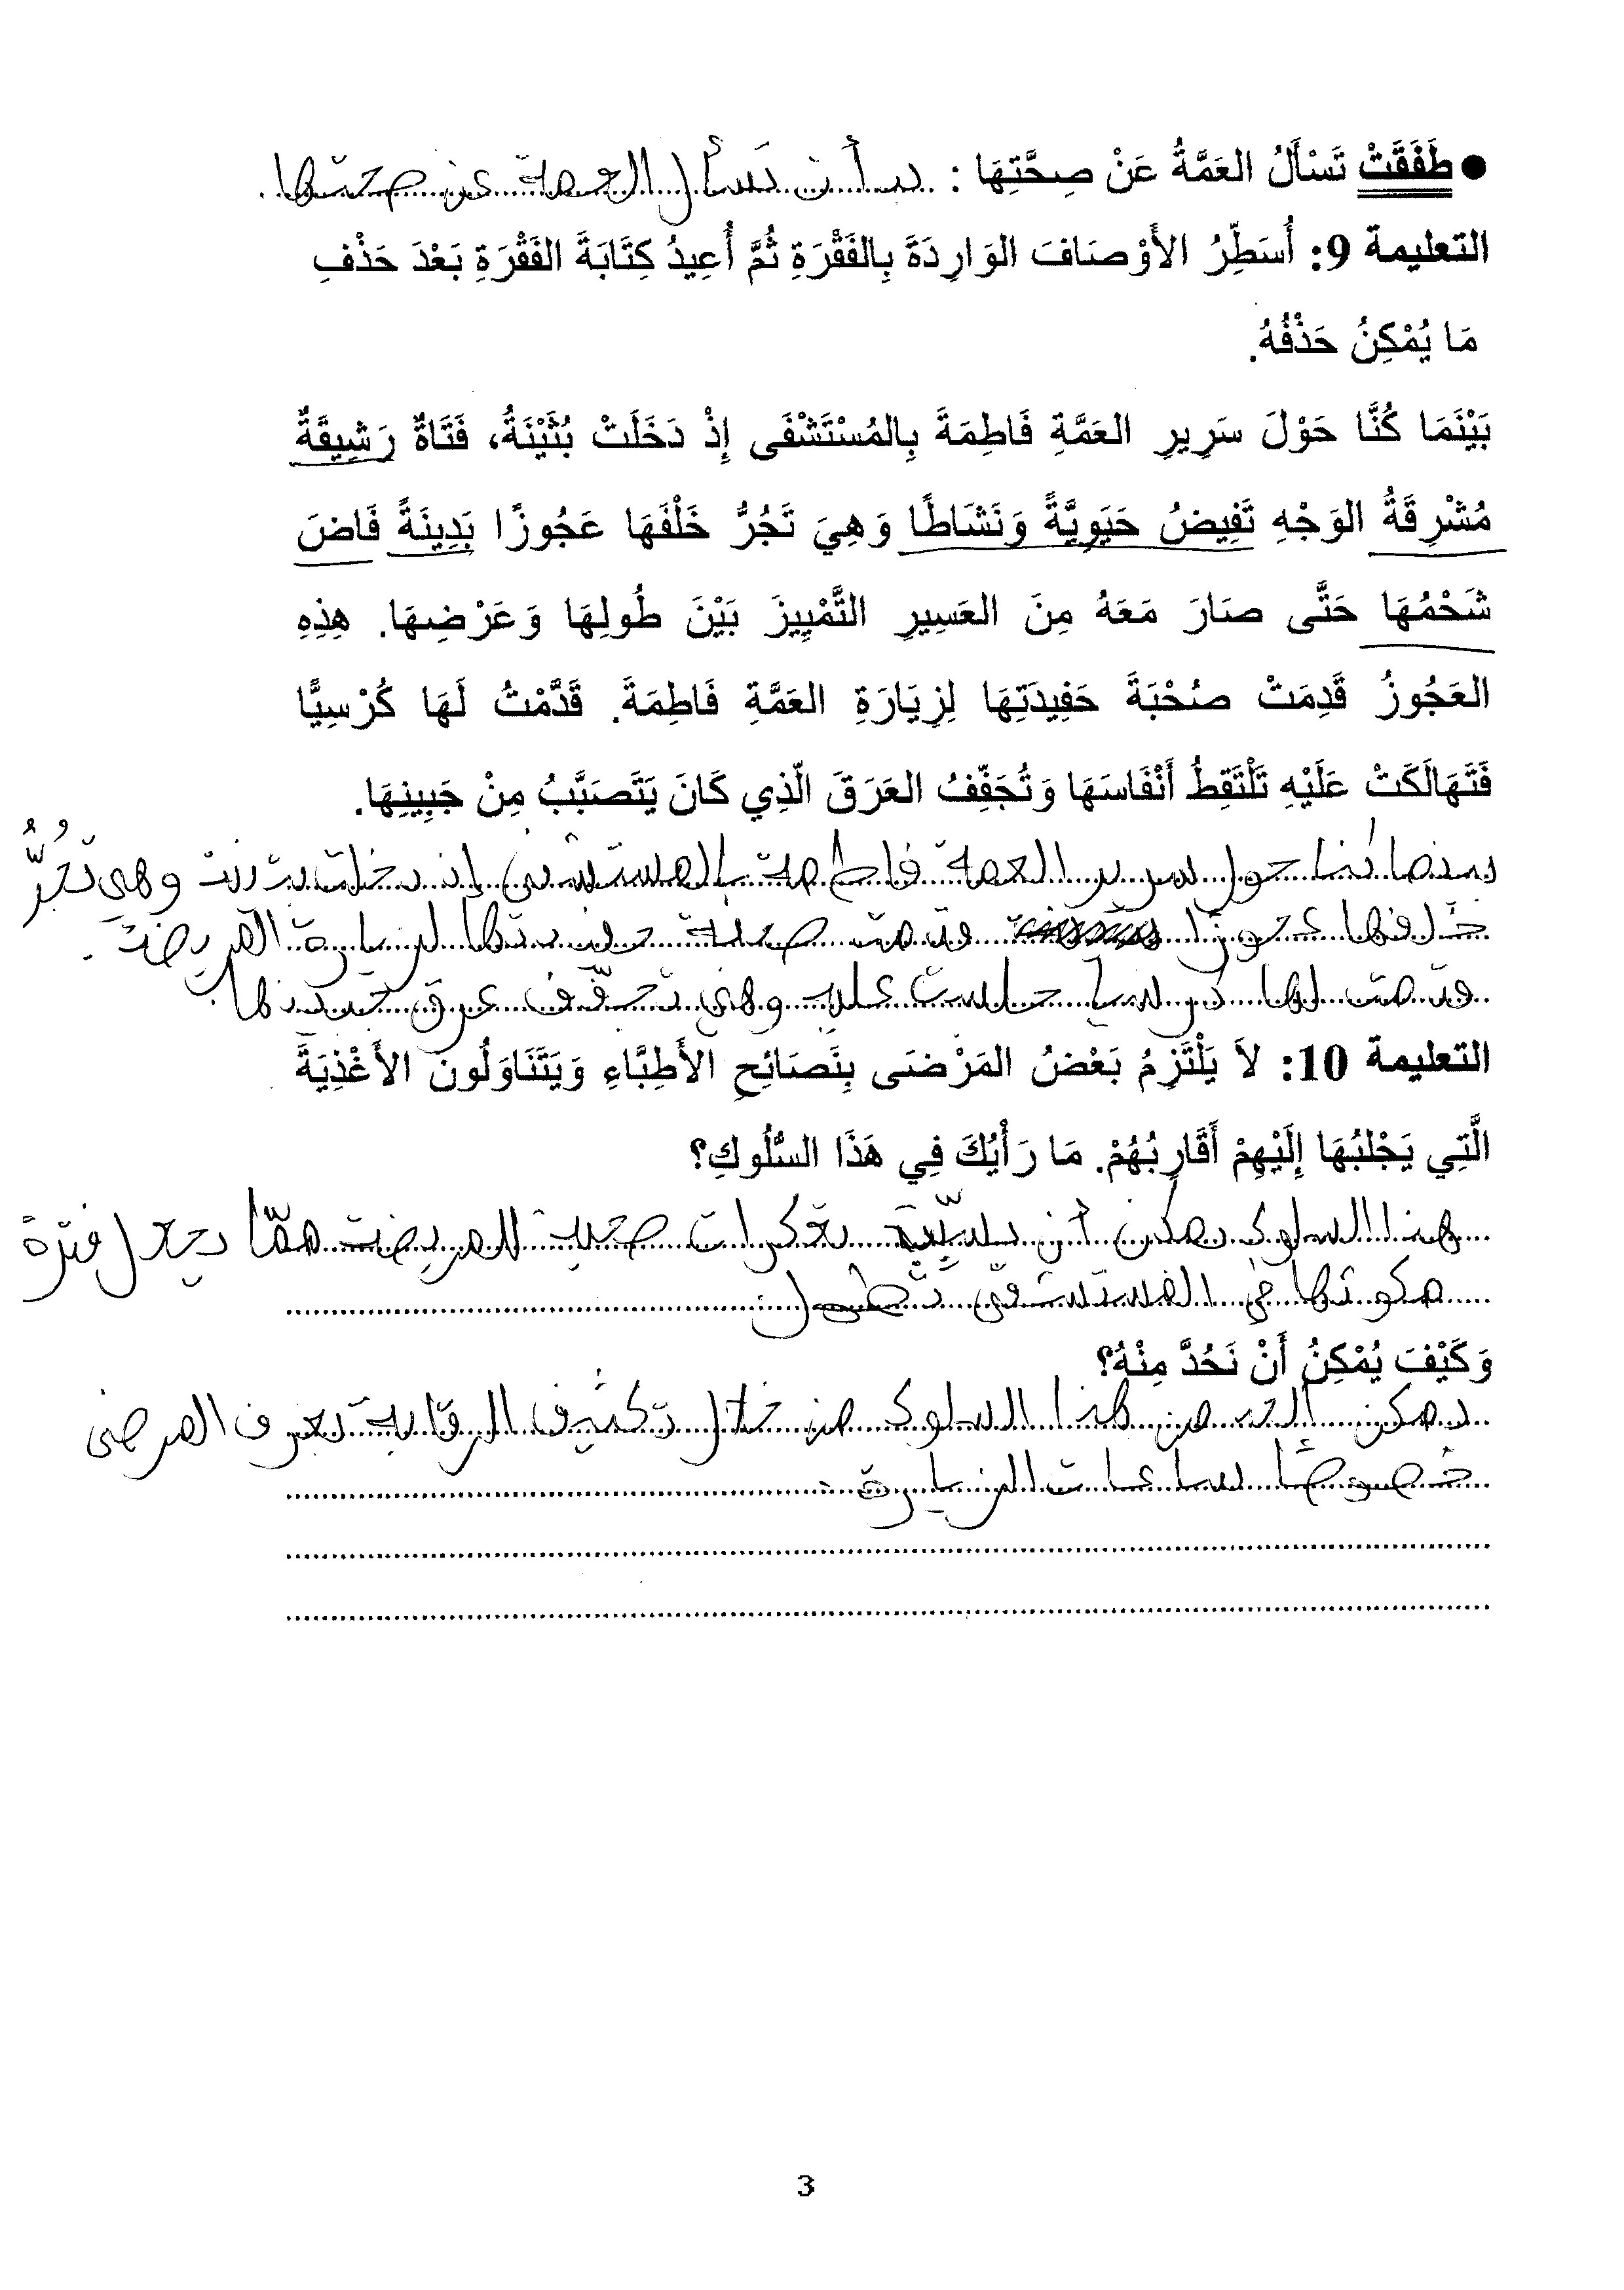 ● طَفَقَتْ تَسْأَلُ العَمَّةُ عَنْ صِحَّتِهَا : بدأت تسأل العمة عن صحتها.
التعليمة 9: أُسَطِّرُ الأَوْصَافَ الوَارِدَةَ بِالفَقْرَةِ ثُمَّ أُعِيدُ كِتَابَةَ الفَقْرَةِ بَعْدَ حَذْفِ
مَا يُمْكِنُ حَذْفُهُ.
بَيْنَمَا كُنَّا حَوْلَ سَرِيرِ العَمَّةِ فَاطِمَةَ بِالمُسْتَشْفَى إِذْ دَخَلَتْ بُثَيْنَةُ، فَتَاةٌ رَشِيقَةٌ
مُشْرِقَةُ الوَجْهِ تَفِيضُ حَيَوِيَّةً وَنَشَاطًا وَهِيَ تَجُرُّ خَلْفَهَا عَجُوزًا بَدِينَةً فَاضَ
شَحْمُهَا حَتَّى صَارَ مَعَهُ مِنَ العَسِيرِ التَّمْيِيزَ بَيْنَ طُولِهَا وَعَرْضِهَا. هِذِهِ
العَجُوزُ قَدِمَتْ صُحْبَةَ حَفِيدَتِهَا لِزِيَارَةِ العَمَّةِ فَاطِمَةَ. قَدَّمْتُ لَهَا كُرْسِيًّا
فَتَهَالَكَتْ عَلَيْهِ تَلْتَقِطُ أَنْفَاسَهَا وَتُجَفِّفُ العَرَقَ الّذِي كَانَ يَتَصَبَّبُ مِنْ جَبِينِهَا.
بينما كنا حول سرير العمة فاطمة بالمستشفى إذ دخلت بثينة وهي تَجُرُّ
خلفها عجوزا قدمت صحبة حفيدتها لزيارة المريضة.
قدمت لها كرسيا جلست عليه وهي تجفّف عرق جبينها.
التعليمة 10: لاَ يَلْتَزِمُ بَعْضُ المَرْضَى بِنَصَائِحِ الأَطِبَّاءِ وَيَتَنَاوَلُونَ الأَغْذِيَةَ
الَّتِي يَجْلبُهَا إِلَيْهِمْ أَقَارِبُهُمْ. مَا رَأْيُكَ فِي هَذَا السُّلُوكِ؟
هذا السلوك يمكن أن يسبّب صحية للمريضة ممّا يجعل فترة
مكوثها في المستشفى تطول
وَكَيْفَ يُمْكِنُ أَنْ نَحُدَّ مِنْهُ؟
يمكن الحد من هذا السلوك من خلال تكثيف الرقابة بغرف المرضى
خصوصًا ساعات الزيارة.
3